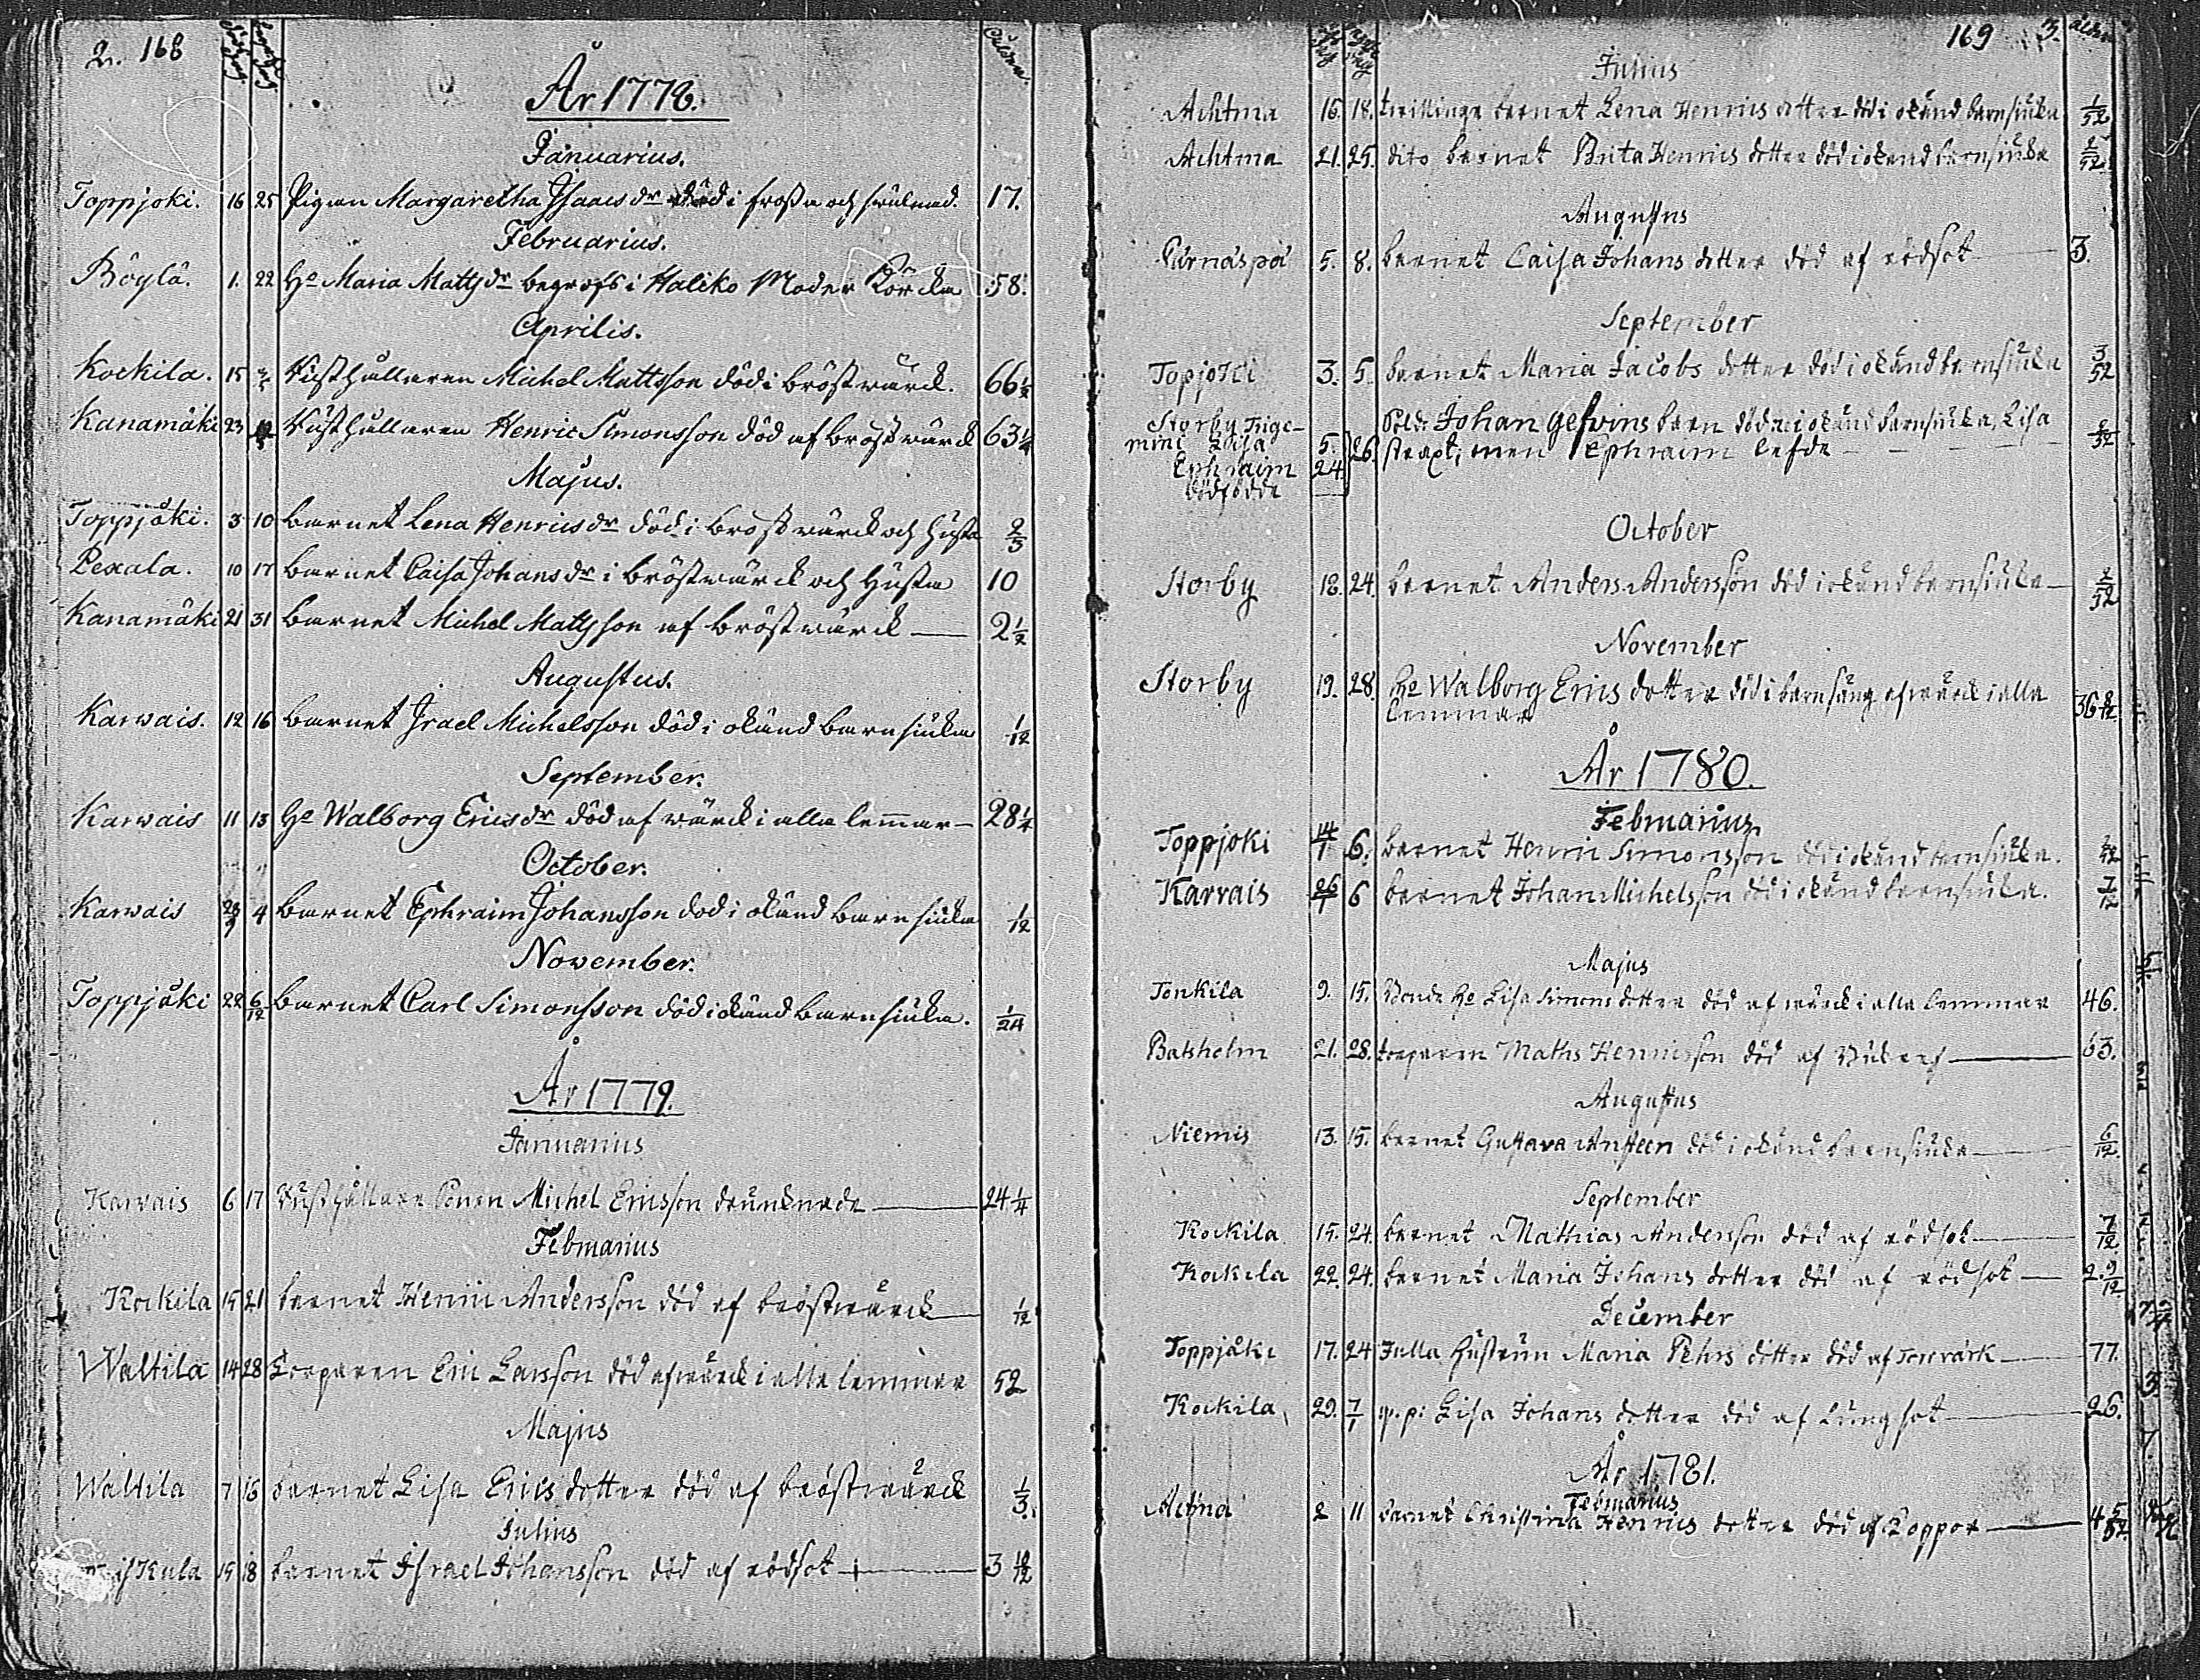 2. 168
ålder.
År 1778.
Januarius.
Toppjoki. 16 25 Pigan Margaretha Isaacs dr död i frossa och swulnad. 17.
Februarius.
Böylä. 1. 22 Ho Maria Matts dr begrofs i Haliko Moder Körcka 58.
Aprilis.
Kockila. 15 3/5 Rusthållaren Michel Mattsson död i bröstwärck. 66 1/2
Kanamäki 23 Rusthållaren Henric Simonsson död af bröstwärck 63 1/4
Majus.
Toppjåki. 3 10 barnet Lena Henrics dr död i bröstwärck och husta 2/3
Pexala. 10 17 barnet Caisa Johans dr i bröstwärck och Husta 10
Kanamäki 21 31 barnet Michel Mattsson af bröstwärck — 2 1/2
Augustus.
Karwais. 12 16 barnet Israel Michelsson död i okänd barnsiuka 1/12
September.
Karwais 11 13 Ho Walborg Erics dr död af wärck i alla lemmar — 28 1/4
October.
Karwais 28/9 4 barnet Ephraim Johansson död i okänd barnsiuka 1/12
November.
Toppjåki 28 6/12 barnet Carl Simonsson död i okänd barnsiuka. 1/24
År 1779.
Januarius
Karvais 6 17 Rusthållare Sonen Michel Ericsson drunknade — 24 1/4
Februarius
Kockila 15 21 barnet Henric Andersson död af bröstwärck — 1/12
Waltila 14 28 Torparen Eric Larsson död af wärck i alla lemmar 52
Majus
Waltila 7 16 barnet Lisa Erics dotter död af bröstwärck 1/3.
Julius
Kula 15 18 barnet Israel Johansson död af rödsot — 3 10/12
169 3. ålder
Julius
Achtma 15. 18. trillinge barnet Lena Henrics dotter död i okänd barnsiuka 1/52
Achtma 21. 25. dito barnet Brita Henrics dotter död i okänd barnsiuka 2/52
Augustus
Pärnäspä 5. 8. barnet Caisa Johans dotter död af rödsot — 3.
September
Topjoki 3. 5. barnet Maria Jacobs dotter död i okänd barnsiuka 3/52
Storby Trige- Sold: Johan Gelwins barn döde i okänd barnsiuka, Lisa
mini Lisa 5. 26. straxt, men Ephraim lefde — 2/52
Ephraim 24.
dödfödde
October
Storby 18. 24. barnet Anders Andersson död i okänd barnsiuka — 2/52
November
Storby 19. 28. Ho Walborg Erics dotter död i barnsäng af wärck i alla
lemmar 36 8/12.
År 1780.
Februarius.
Toppjoki 14/1 6. barnet Henric Simonsson död i okänd barnsiuka.
Karvais 26/1 6 barnet Johan Michelsson död i okänd barnsiuka. 7/12
Majus
Tonkila 9. 15. Bonde Ho Lisa Simons dotter död af wärck i alla lemmar 46.
Batsholm 21. 28. torparen Maths Henricsson död af — 63.
Augustus
Niemis 13. 15. barnet Gustava Ansteen död i okänd barnsiuka — 6/12.
September
Kockila 15. 24. barnet Mathias Andersson död af rödsot — 7/12
Kockila 22. 24. barnet Maria Johans dotter död af rödsot — 2 9/12
December
Toppjåki 17. 24 Hustrun Maria Pehrs dotter död af — 77.
Kockila 29. 7/1 p. p: Lisa Johans dotter död af lungsot — 26.
År 1781.
Februarius
Actma 2 11 barnet Christina Henrics dotter död af koppor — 4 5/52